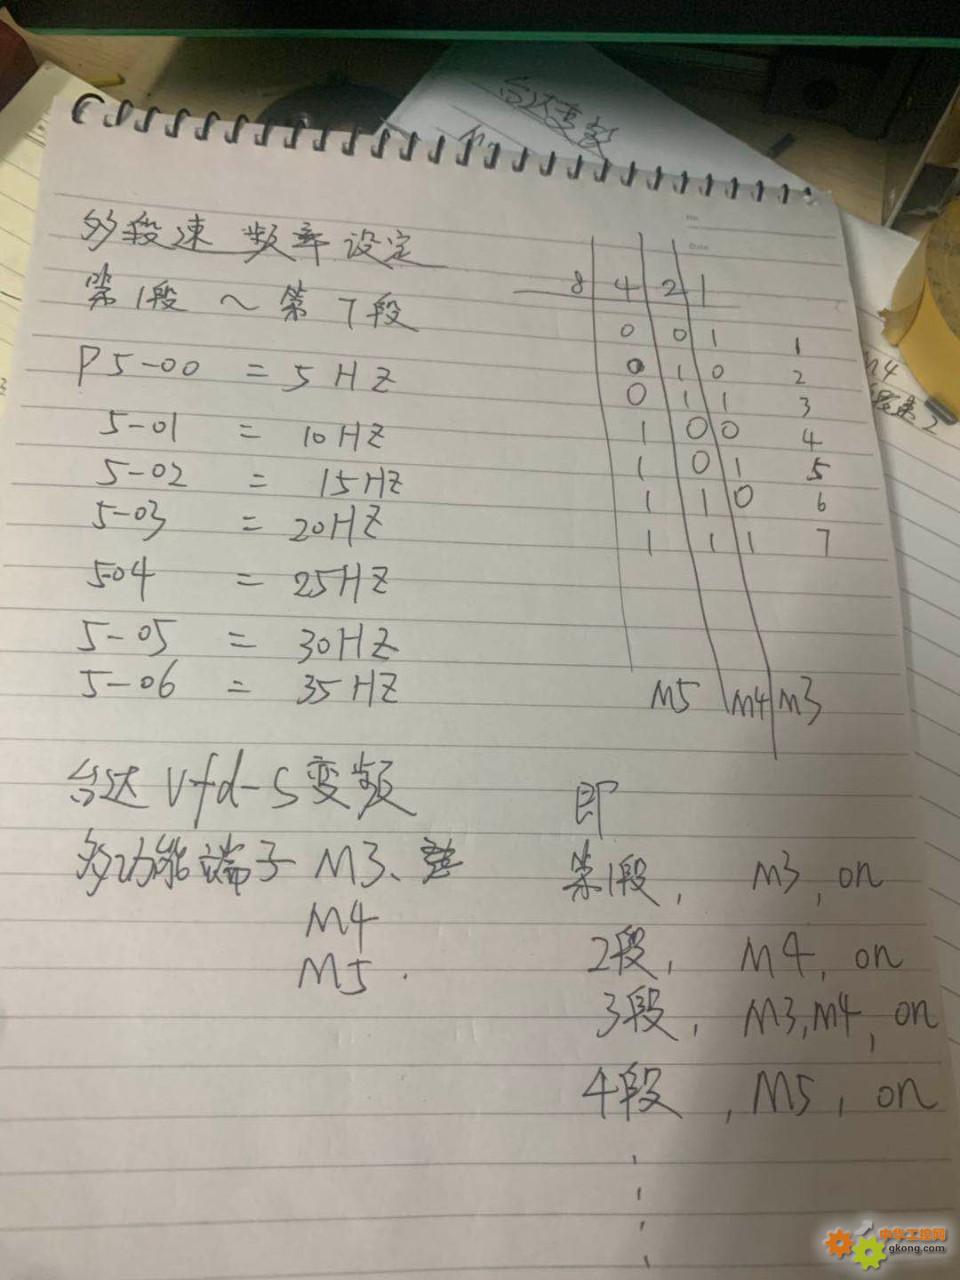 台达变数
多段速 频率设定
第1段 ~ 第7段
P5-00 = 5HZ
5-01 = 10HZ
5-02 = 15HZ
5-03 = 20HZ
504 = 25HZ
5-05 = 30HZ
5-06 = 35HZ
8 4 2 1
0 0 1 1
0 1 0 2
0 1 1 3
1 0 0 4
1 0 1 5
1 1 0 6
1 1 1 7
M5 M4 M3
台达Vfd-S变频
多功能端子 M3、
M4
M5.
即
第1段, M3, on
2段, M4, on
3段, M3,M4, on
4段, M5, on
No
Date
中华工控网
gkong.com